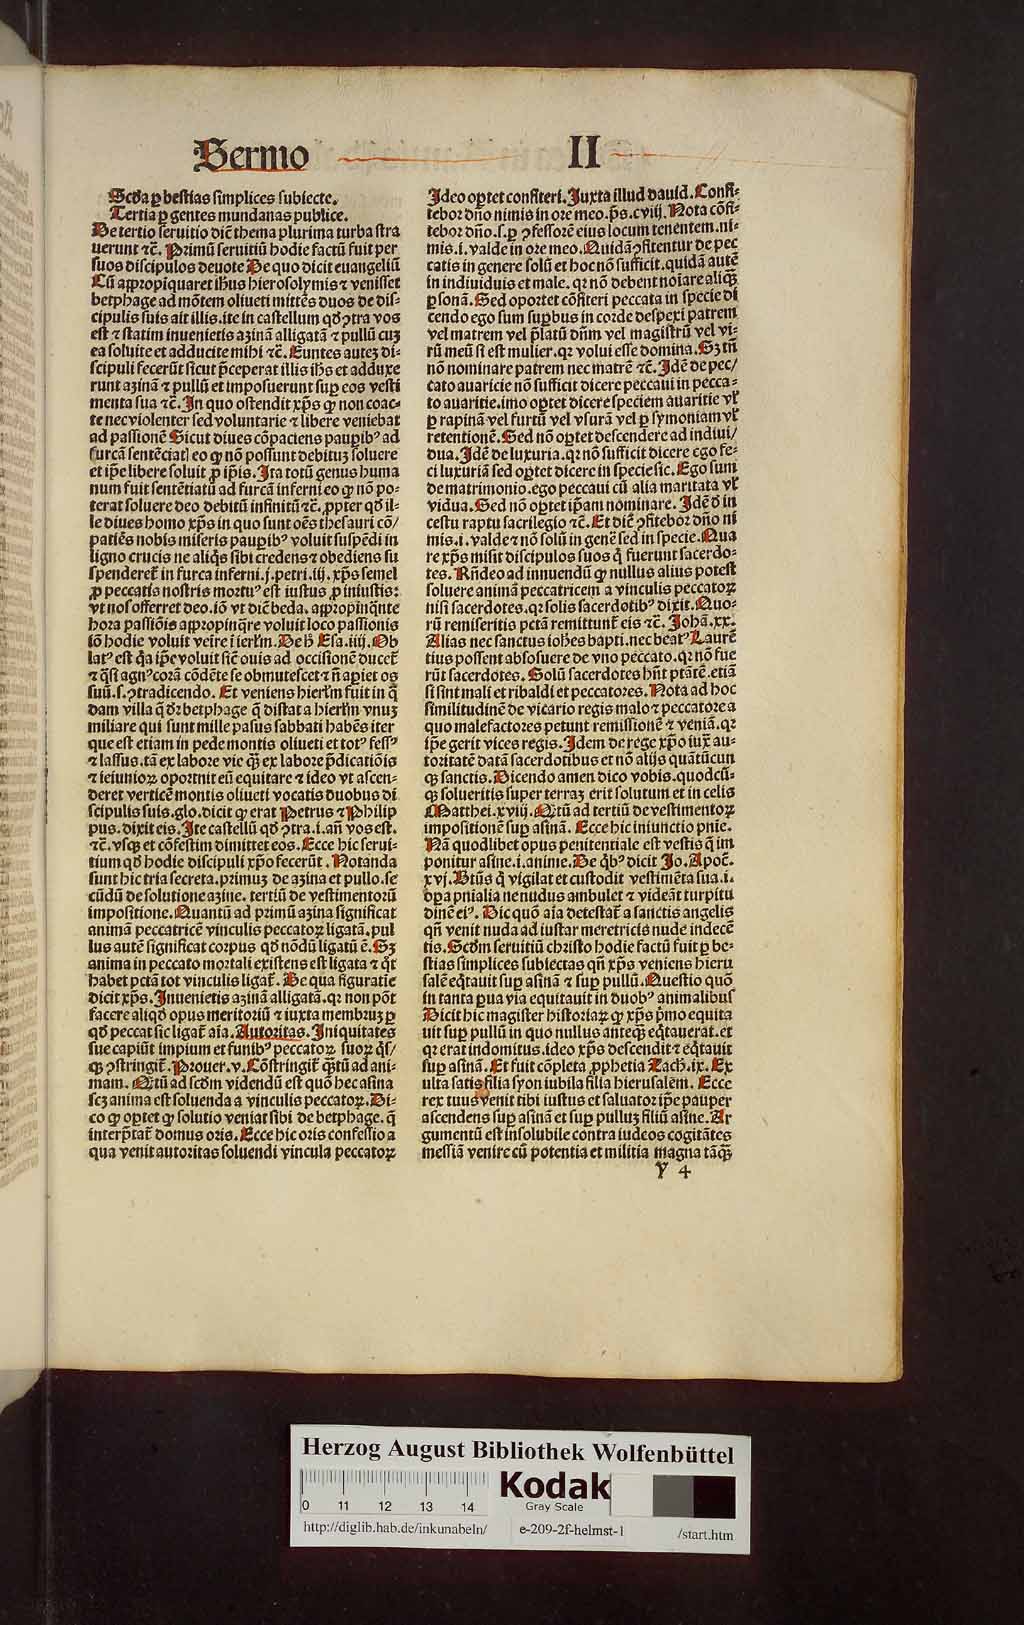 Sermo II
Scd̄a ꝑ bestias simplices subiecte.
Tertia ꝑ gentes mundanas publice.
De tertio seruitio diē thema plurima turba stra
uerunt ⁊c̄. Primū seruitiū hodie factū fuit per
suos discipulos deuote De quo dicit euangeliū
Cū appropīquaret ih̄us hierosolymis ⁊ venisset
betphage ad mōtem oliueti mittēs duos de dis⸗
cipulis suis ait illis. ite in castellum qd̄ ꝯtra vos
est ⁊ statim inuenietis azinā alligatā ⁊ pullū cuꝫ
ea soluite et adducite mihi ⁊c̄. Euntes auteꝫ di⸗
scipuli fecerūt sicut p̄ceperat illis ih̄s et adduxe
runt azinā ⁊ pullū et imposuerunt suꝑ eos vesti
menta sua ⁊c̄. In quo ostendit xp̄s ꝙ non coac⸗
te nec violenter sed voluntarie ⁊ libere veniebat
ad passionē Sicut diues cōpaciens pauꝑibꝰ ad
furcā sentēciatꝭ eo ꝙ nō possunt debituꝫ soluere
et ip̄e libere soluit ꝓ ip̄is. Ita totū genus huma
num fuit sentētiatū ad furcā inferni eo ꝙ nō po⸗
terat soluere deo debitū infinitū ⁊c̄. ꝓpter qd̄ il⸗
le diues homo xp̄s in quo sunt oēs thesauri cō/
patiēs nobis miseris pauꝑibꝰ voluit suspēdi in
ligno crucis ne aliqͥs sibi credens ⁊ obediens su
spenderet̄ in furca inferni. j. petri. iij. xp̄s semel
ꝓ peccatis nostris mortuꝰ est iustus ꝓ iniustis:
vt nos offerret deo. iō vt diē beda. appropinqͣnte
hora passiōis appropinqͣre voluit loco passionis
iō hodie voluit veīre ī ierl̄m. De h̄ Esa. iiij. Ob
latꝰ est qͥa ip̄e voluit sic̄ ouis ad occisionē ducet̄
⁊ qͣsi agnꝰ corā cōdēte se obmutescet ⁊ n̄ aꝑiet os
suū. s. ꝯtradicendo. Et veniens hierl̄m fuit in q̄
dam villa q̄ dr̄ betphage q̄ distat a hierl̄m vnuꝫ
miliare qui sunt mille pasus sabbati habēs iter
que est etiam in pede montis oliueti et totꝰ fessꝰ
⁊ lassus. tā ex labore vie qͣꝫ ex labore p̄dicatiōis
⁊ ieiunioꝝ oportnit eū equitare ⁊ ideo vt ascen⸗
deret verticē montis oliueti vocatis duobus di
scipulis suis. glo. dicit ꝙ erat Petrus ⁊ Philip
pus. dixit eis. Ite castellū qd̄ ꝯtra. i. an̄ vos est.
⁊c̄. vsqꝫ et cōfestim dimittet eos. Ecce hic serui⸗
tium qd̄ hodie discipuli xp̄o fecerūt. Notanda
sunt hic tria secreta. primuꝫ de azina et pullo. se
cūdū de solutione azine. tertiū de vestimentorū
impositione. Quantū ad primū azina significat
animā peccatricē vinculis peccatoꝝ ligatā. pul
lus autē significat corpus qd̄ nōdū ligatū ē. Sꝫ
anima in peccato mortali existens est ligata ⁊ qͦt
habet pctā tot vinculis ligat̄. De qua figuratie
dicit xp̄s. Inuenietis azinā alligatā. qꝛ non pōt
facere aliqd̄ opus meritoriū ⁊ iuxta membruꝫ ꝑ
qd̄ peccat sic ligat̄ aīa. Autoritas. Iniquitates
sue capiūt impium et funibꝰ peccatoꝝ suoꝝ qͥs/
qꝫ ꝯstringit̄. Prouer. v. Cōstringit̄ qͣꝫtū ad ani⸗
mam. Qͣꝫtū ad scd̄m videndū est quō hec asina
scꝫ anima est soluenda a vinculis peccatoꝝ. Di⸗
co ꝙ oꝑtet ꝙ solutio veniat sibi de betphage. q̄
interp̄tat̄ domus oris. Ecce hic oris confessio a
qua venit autoritas soluendi vincula peccatoꝝ
Ideo oꝑtet confiteri. Iuxta illud dauid. Confi⸗
tebor dn̄o nimis in ore meo. ps̄. cviij. Nota cōfi⸗
tebor dn̄o. s. ꝑ ꝯfessorē eius locum tenentem. ni⸗
mis. i. valde in ore meo. Quidā ꝯfitentur de pec
catis in genere solū et hoc nō sufficit. quidā autē
in indiuiduis et male. qꝛ nō debent noīare aliqͣꝫ
ꝑsonā. Sed oportet cōfiteri peccata in specie di
cendo ego sum suꝑbus in corde despexi patrem
vel matrem vel p̄latū dn̄m vel magistrū vel vi⸗
rū meū si est mulier. qꝛ volui esse domina. Sꝫ tn̄
nō nominare patrem nec matrē ⁊c̄. Idē de pec/
cato auaricie nō sufficit dicere peccaui in pecca⸗
to auaritie. imo oꝑtet dicere speciem auaritie vl̓
ꝑ rapinā vel furtū vel vsurā vel ꝑ symoniam vl̓
retentionē. Sed nō oꝑtet descendere ad indiui/
dua. Idē de luxuria. qꝛ nō sufficit dicere ego fe⸗
ci luxuriā sed oꝑtet dicere in specie sic. Ego sum
de matrimonio. ego peccaui cū alia maritata vl̓
vidua. Sed nō oꝑtet ip̄am nominare. Idē d̄ in
cestu raptu sacrilegio ⁊c̄. Et diē ꝯfitebor dn̄o ni
mis. i. valde ⁊ nō solū in genē sed in specie. Qua
re xp̄s misit discipulos suos q̄ fuerunt sacerdo⸗
tes. Rn̄deo ad innuendū ꝙ nullus alius potest
soluere animā peccatricem a vinculis peccatoꝝ
nisi sacerdotes. qꝛ solis sacerdotibꝰ dixit. Quo⸗
rū remiseritis pctā remittunt̄ eis ⁊c̄. Johā. xx.
Alias nec sanctus ioh̄es bapti. nec beatꝰ Laurē
tius possent absosuere de vno peccato. qꝛ nō fue
rūt sacerdotes. Solū sacerdotes hn̄t ptātē. etiā
si sint mali et ribaldi et peccatores. Nota ad hoc
similitudinē de vicario regis malo ⁊ peccatore a
quo malefactores petunt remissionē ⁊ veniā. qꝛ
ip̄e gerit vices regis. Idem de rege xp̄o iux̄ au⸗
toritatē datā sacerdotibus et nō alijs quātūcun
qꝫ sanctis. Dicendo amen dico vobis. quodcū⸗
qꝫ solueritis super terraꝫ erit solutum et in celis
Matthei. xviij. Qͣꝫtū ad tertiū de vestimentoꝝ
impositionē suꝑ asinā. Ecce hic iniunctio pnīe.
Nā quodlibet opus penitentiale est vestis q̄ im
ponitur asine. i. anime. De qͥbꝰ dicit Jo. Apoc̄.
xvj. Bt̄us qͥ vigilat et custodit vestimēta sua. i.
oꝑa pnialia ne nudus ambulet ⁊ videāt turpitu
dinē eiꝰ. Dic quō aīa detestat̄ a sanctis angelis
qn̄ venit nuda ad iustar meretricis nude indecē
tis. Scd̄m seruitiū christo hodie factū fuit ꝑ be⸗
stias simplices subiectas qn̄ xp̄s veniens hieru
salē eqͥtauit suꝑ asinā ⁊ suꝑ pullū. Questio quō
in tanta ꝑua via equitauit in duobꝰ animalibus
Dicit hic magister historiaꝝ ꝙ xp̄s pͥmo equita
uit suꝑ pullū in quo nullus anteqͣꝫ eqͥtauerat. et
qꝛ erat indomitus. ideo xp̄s descendit ⁊ eqͥtauit
suꝑ asinā. Et fuit cōpleta ꝓphetia Zach. ix. Ex
ulta satis filia syon iubila filia hierusalem. Ecce
rex tuus venit tibi iustus et saluator ip̄e pauper
ascendens suꝑ asinā et suꝑ pulluꝫ filiū asine. Ar
gumentū est insolubile contra iudeos cogitātes
messiā venire cū potentia et militia magna tāqͣꝫ
Y 4
Herzog August Bibliothek Wolfenbüttel
0 11 12 13 14
Kodak
Gray Scale
http://diglib.hab.de/inkunabeln/ e-209-2f-helmst-1 /start.htm